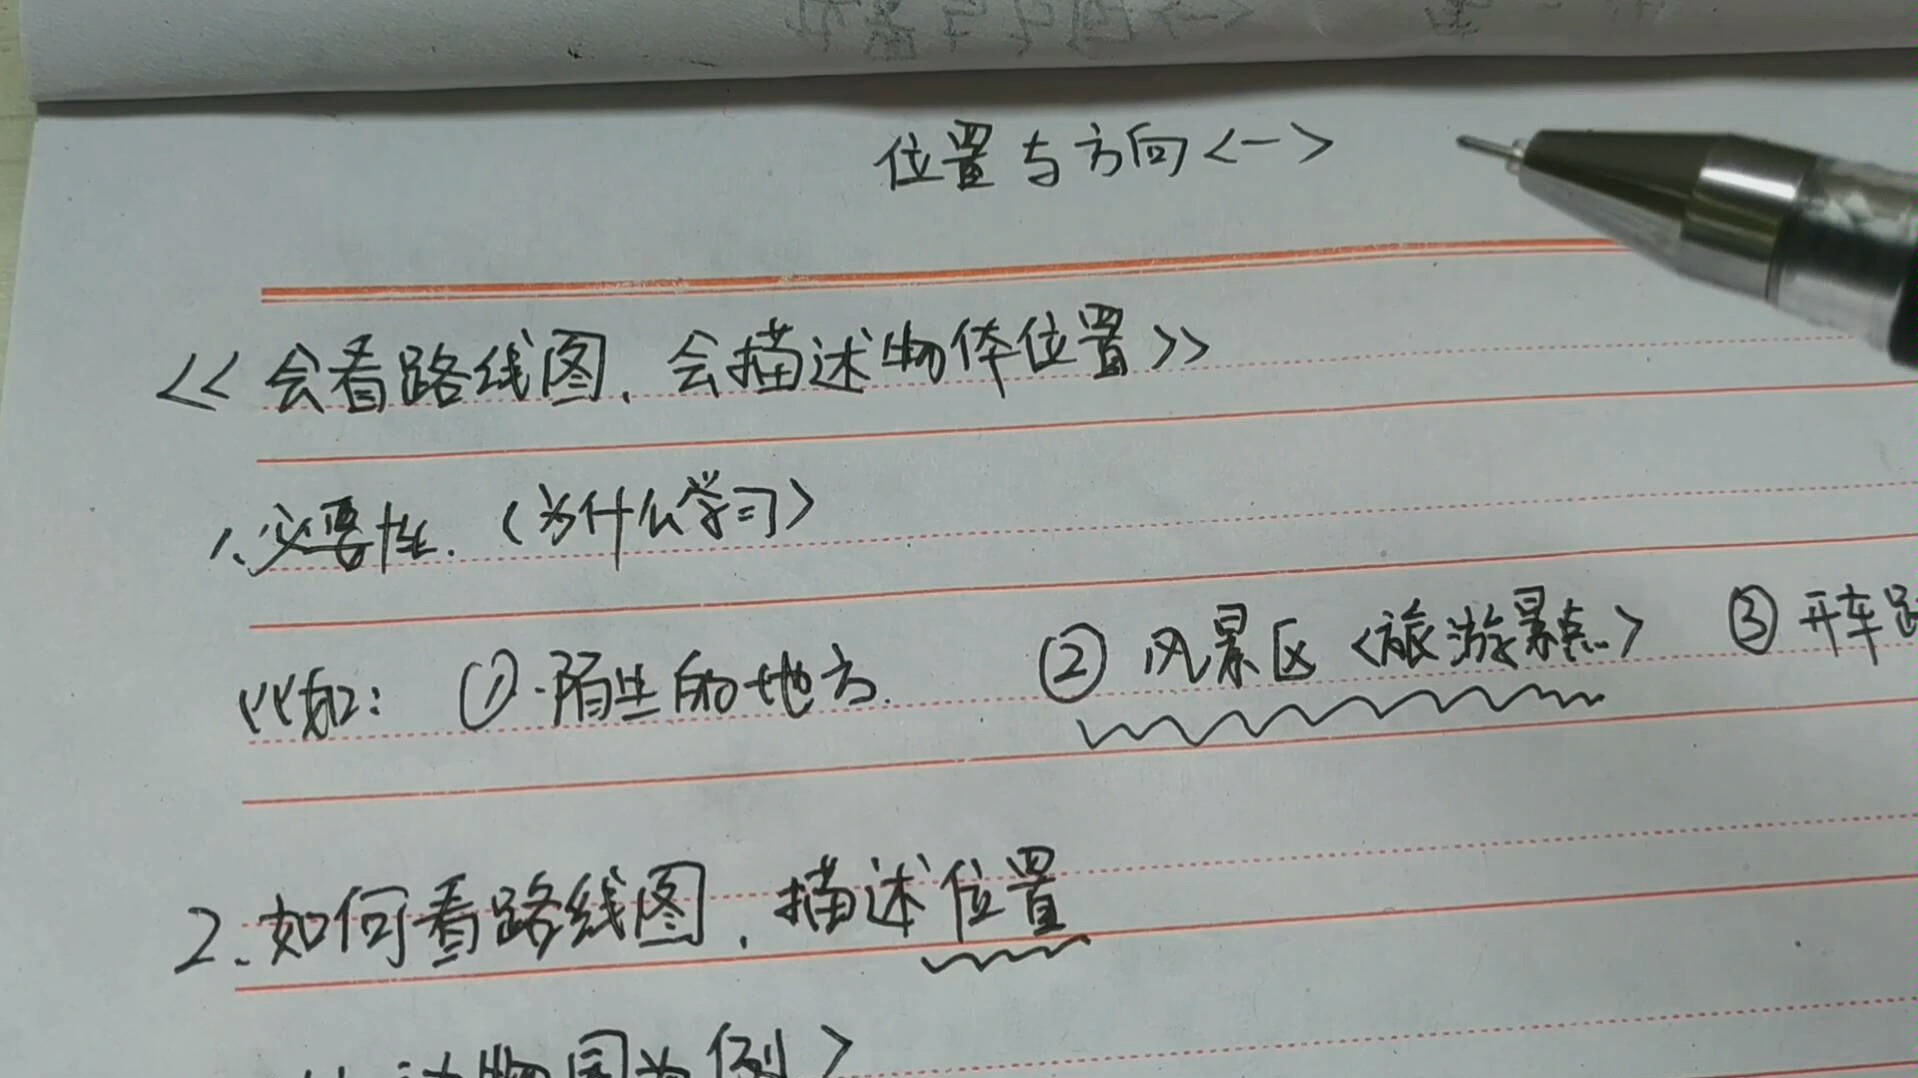 位置与方向<一>
<<会看路线图，会描述物体位置>>
1.必要性.<为什么学习>
比如: ①陌生的地方. ②风景区<旅游景点> ③开车
2.如何看路线图，描述位置
动物园为例>